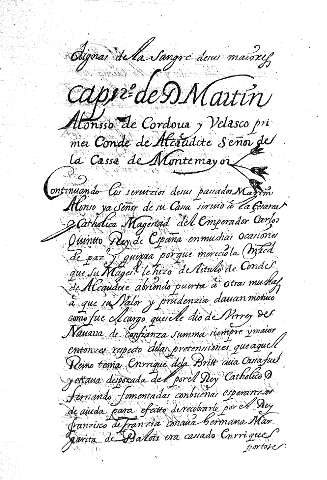 dignas de la sangre de sus maiores
capº de D Martin
Alonsso de Cordoua y Velasco pri
mer Conde de Alcaudete Señor de
la Cassa de Montemayor
Continuando los seruizios de sus passados Martin
Alonso ya Señor de su Cassa siruio a la Cessarea
y Catholica Magestad del Emperador Carlos
Quinto Rey de España en muchas ocasiones
de paz y guerra porque merecio la Mrd
que su Magd le hizo de titulo de Conde
de Alcaudete abriendo puerta a otras muchas
a que su Valor y prudenzia dauan motiuo
como fue el cargo que le dio de Virrey de
Nauarra de confianza summa siempre y maior
entonces respecto de las pretensiones que a aquel
Reino tenia Enrrique de la Brit cuia Cassa fue
y estaua despojada del por el Rey Catholico D
fernando fomentadas con buenas esperanzas
de aiuda para efecto de recobrarlo por el Rey
francisco de francia con cuia hermana Mar
garita de Valois era cassado Enrrique
portore